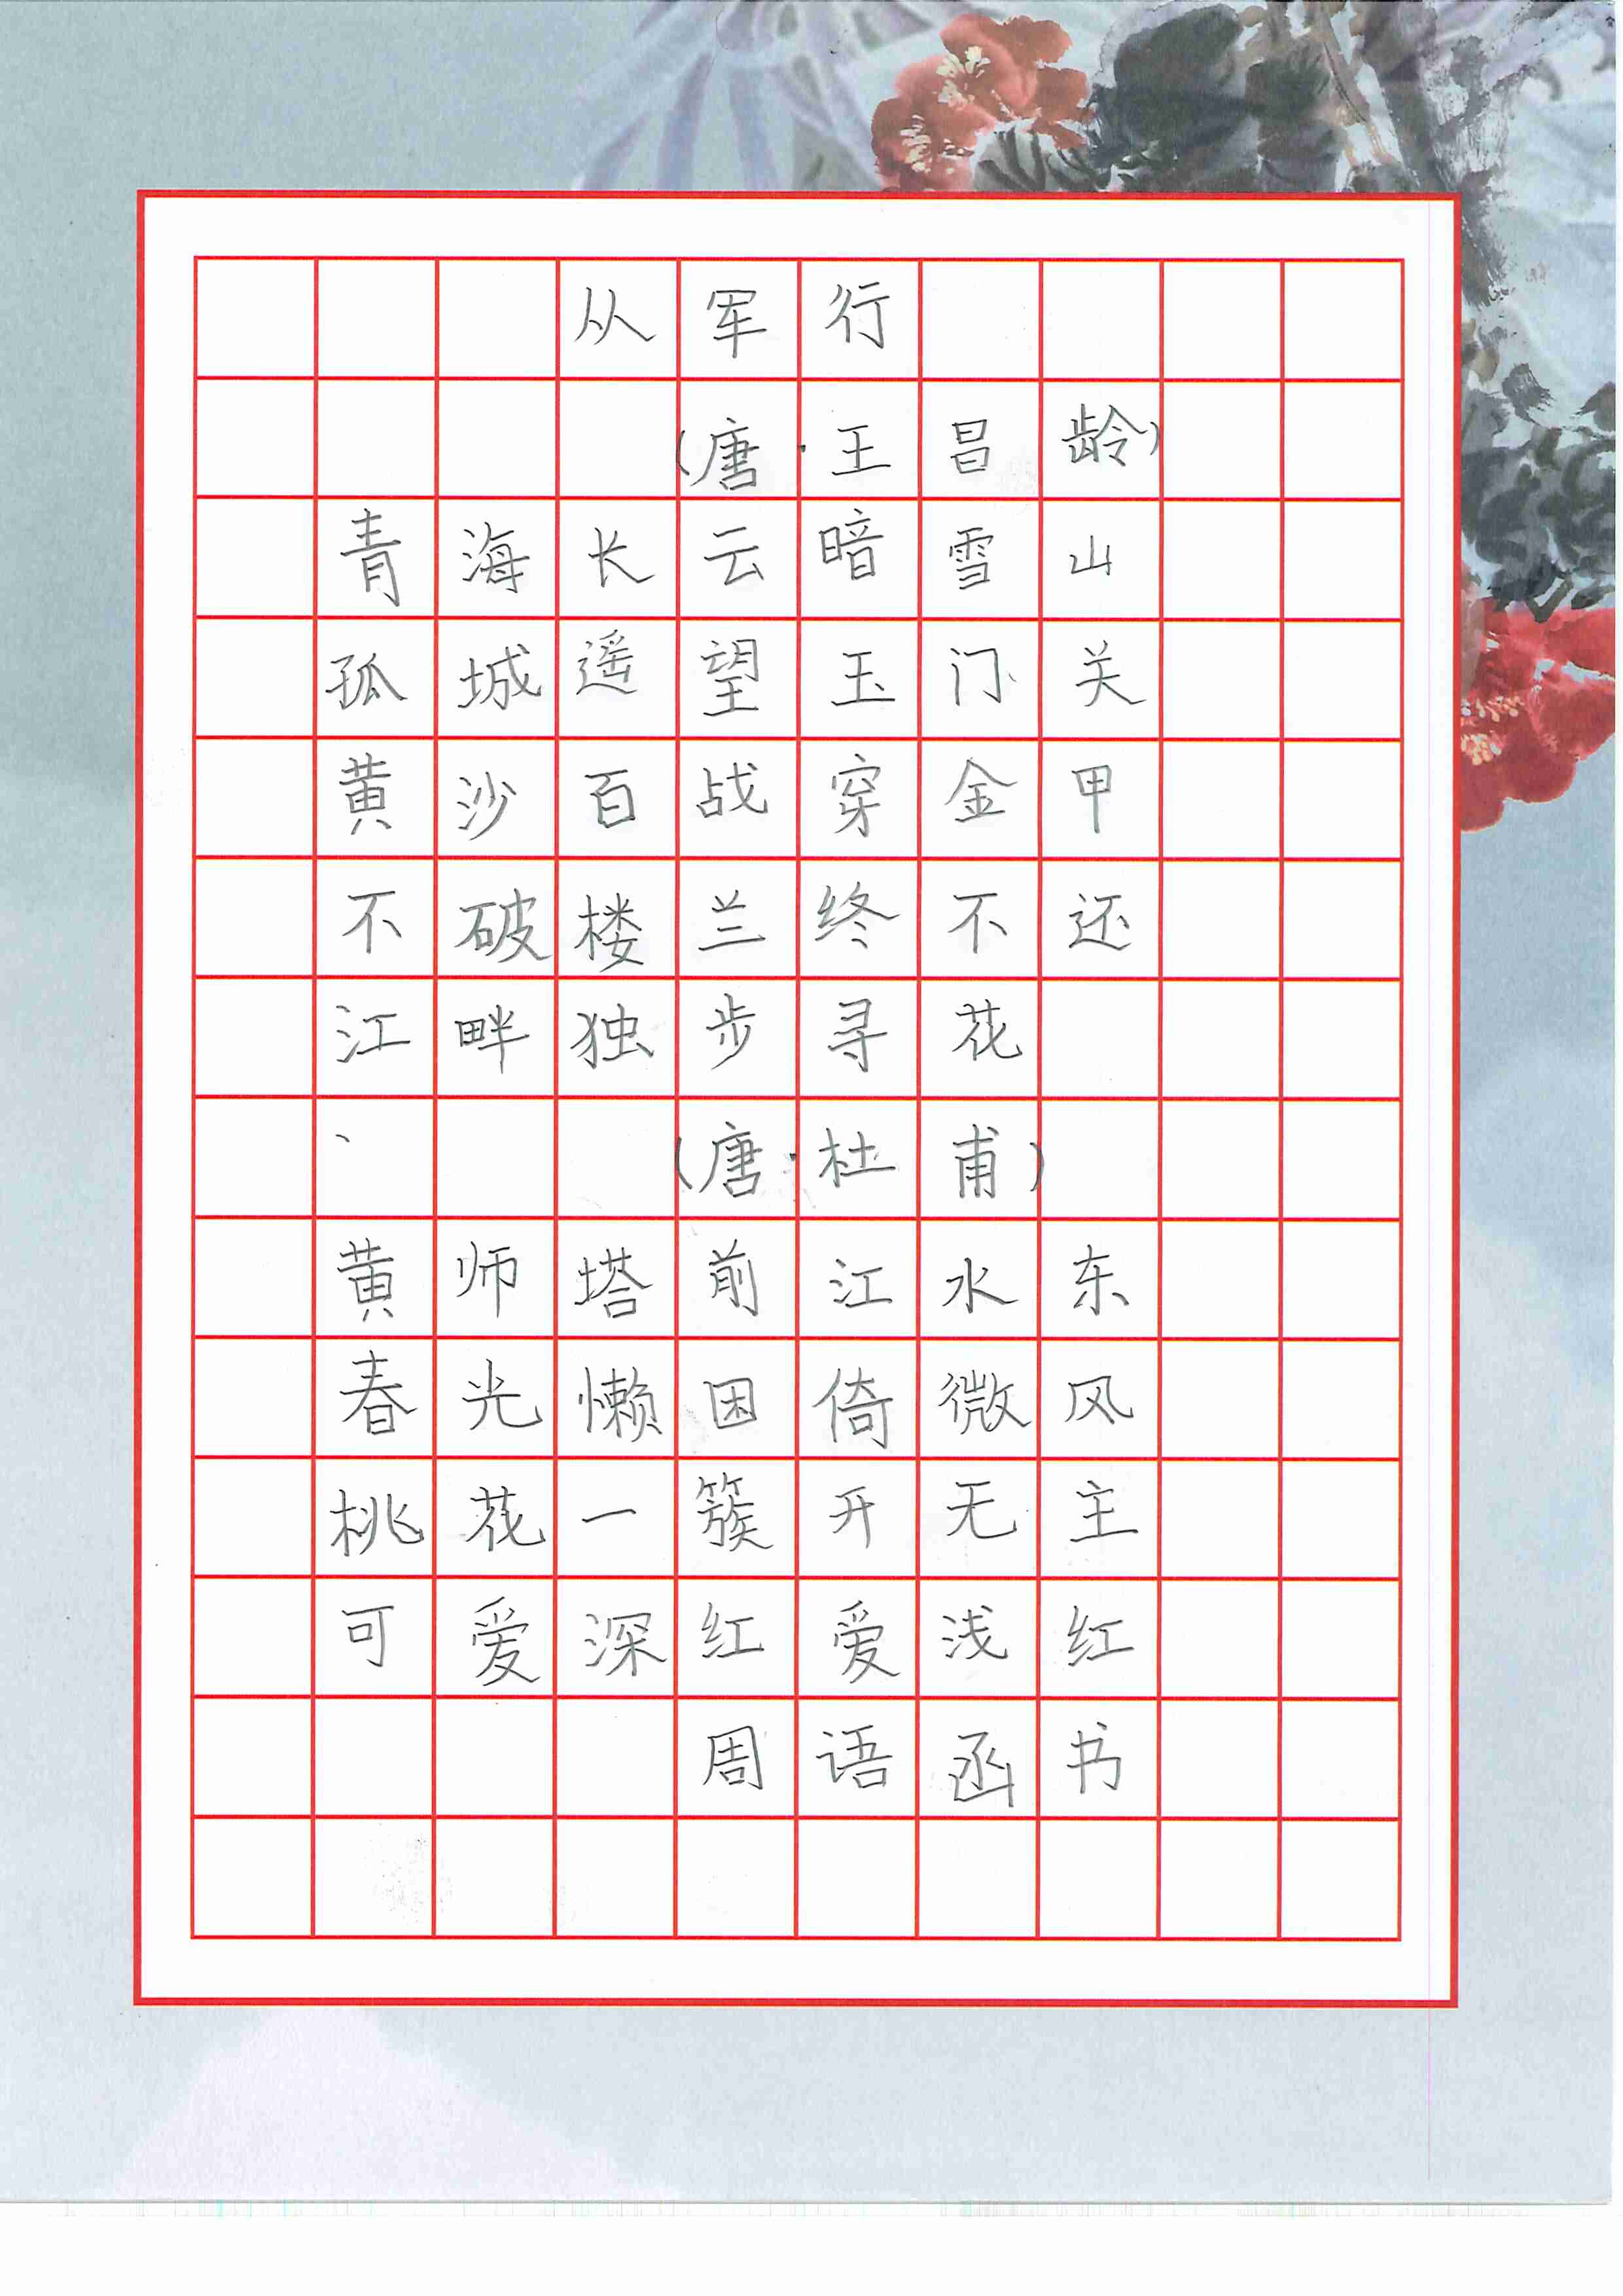 从军行
(唐·王昌龄)
青海长云暗雪山
孤城遥望玉门关
黄沙百战穿金甲
不破楼兰终不还
江畔独步寻花
(唐·杜甫)
黄师塔前江水东
春光懒困倚微风
桃花一簇开无主
可爱深红爱浅红
周语函书